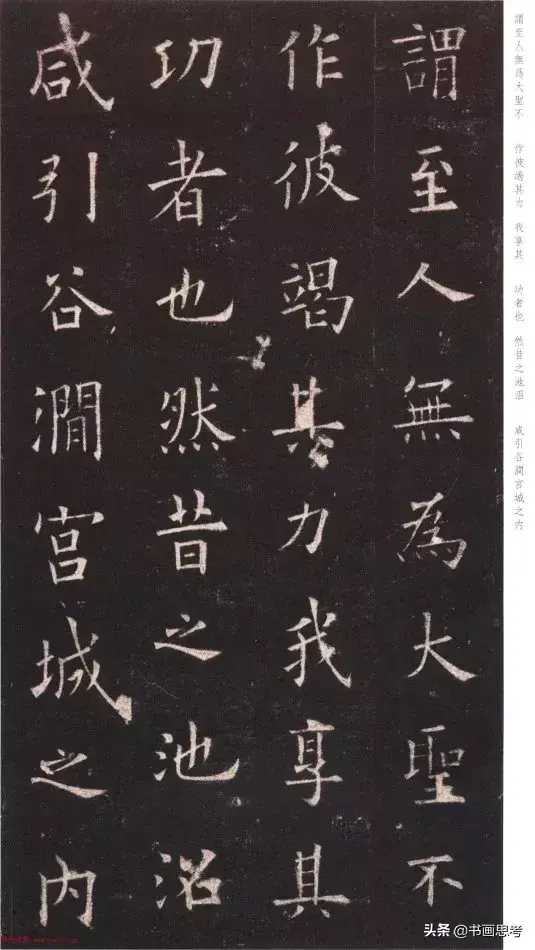 謂至人無為大聖不
作彼竭其力我享其
功者也然昔之池沼
咸引谷澗宮城之内
謂至人無爲大聖不 作彼竭其力 我享其 功者也 然昔之池沼 咸引谷澗宮城之内
头条@书画思考